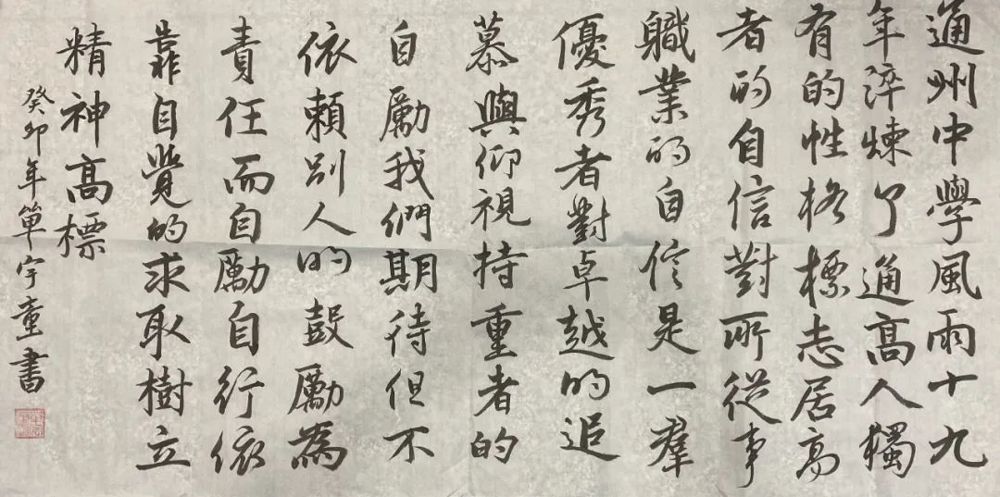 通州中學風雨十九
年淬煉了通高人獨
有的性格標志居高
者的自信對所從事
職業的自信是一羣
優秀者對卓越的追
慕與仰視持重者的
自勵我們期待但不
依賴別人的鼓勵為
責任而自勵自行依
靠自覺的求取樹立
精神高標
癸卯年單宇童書